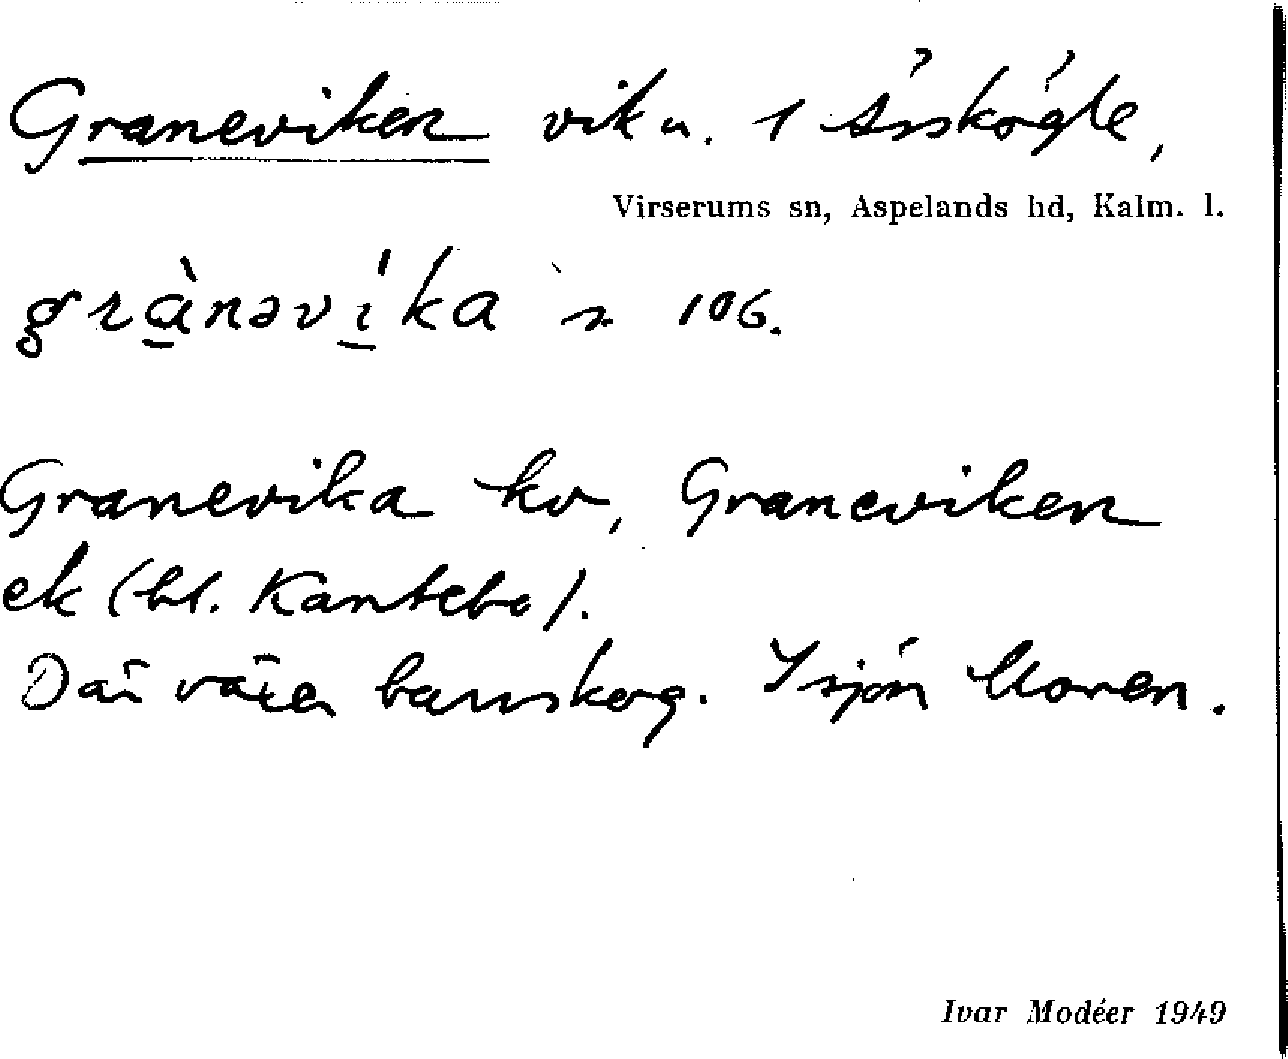 Graneviken vik u. 1 Årskögle,
Virserums sn, Aspelands hd, Kalm. l.
grànəvíka 106.
Granevika kv, Graneviken
ek (bl. Kantebo).
Där växer barrskog. I sjön Moren.
Ivar Modéer 1949